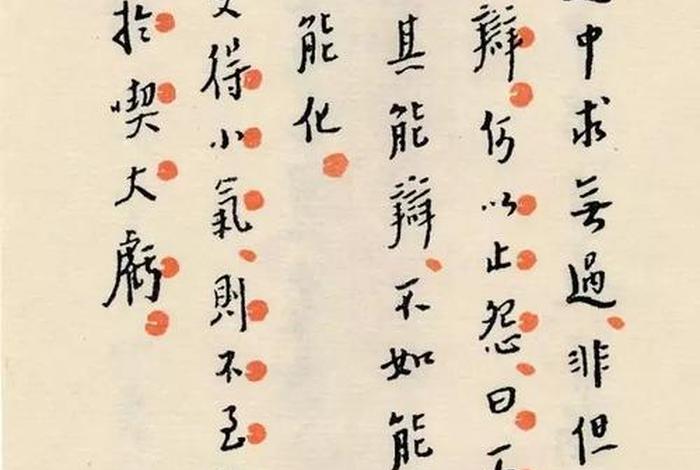 中求無過非但
辯何以止怨曰
其能辯不如能
能化
得小氣則不至
於喫大虧